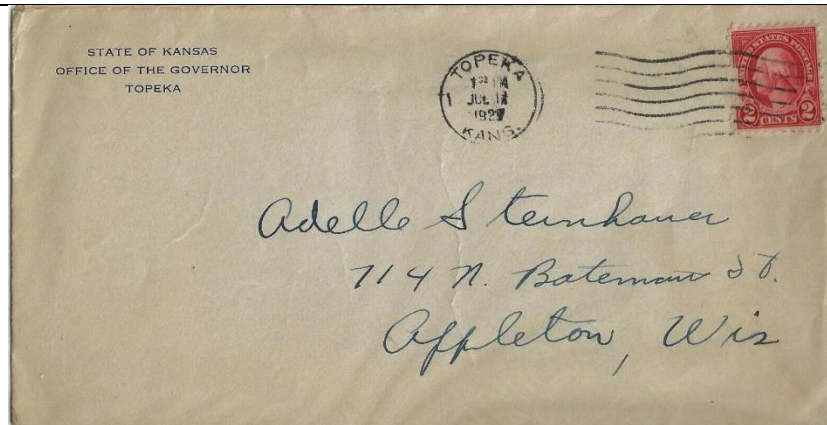 STATE OF KANSAS
OFFICE OF THE GOVERNOR
TOPEKA
TOPEKA
1
JUL
1927
KANS.
UNITED STATES POSTAGE
2 CENTS 2
Adelle Steinhauer
714 N. Bateman St.
Appleton, Wis